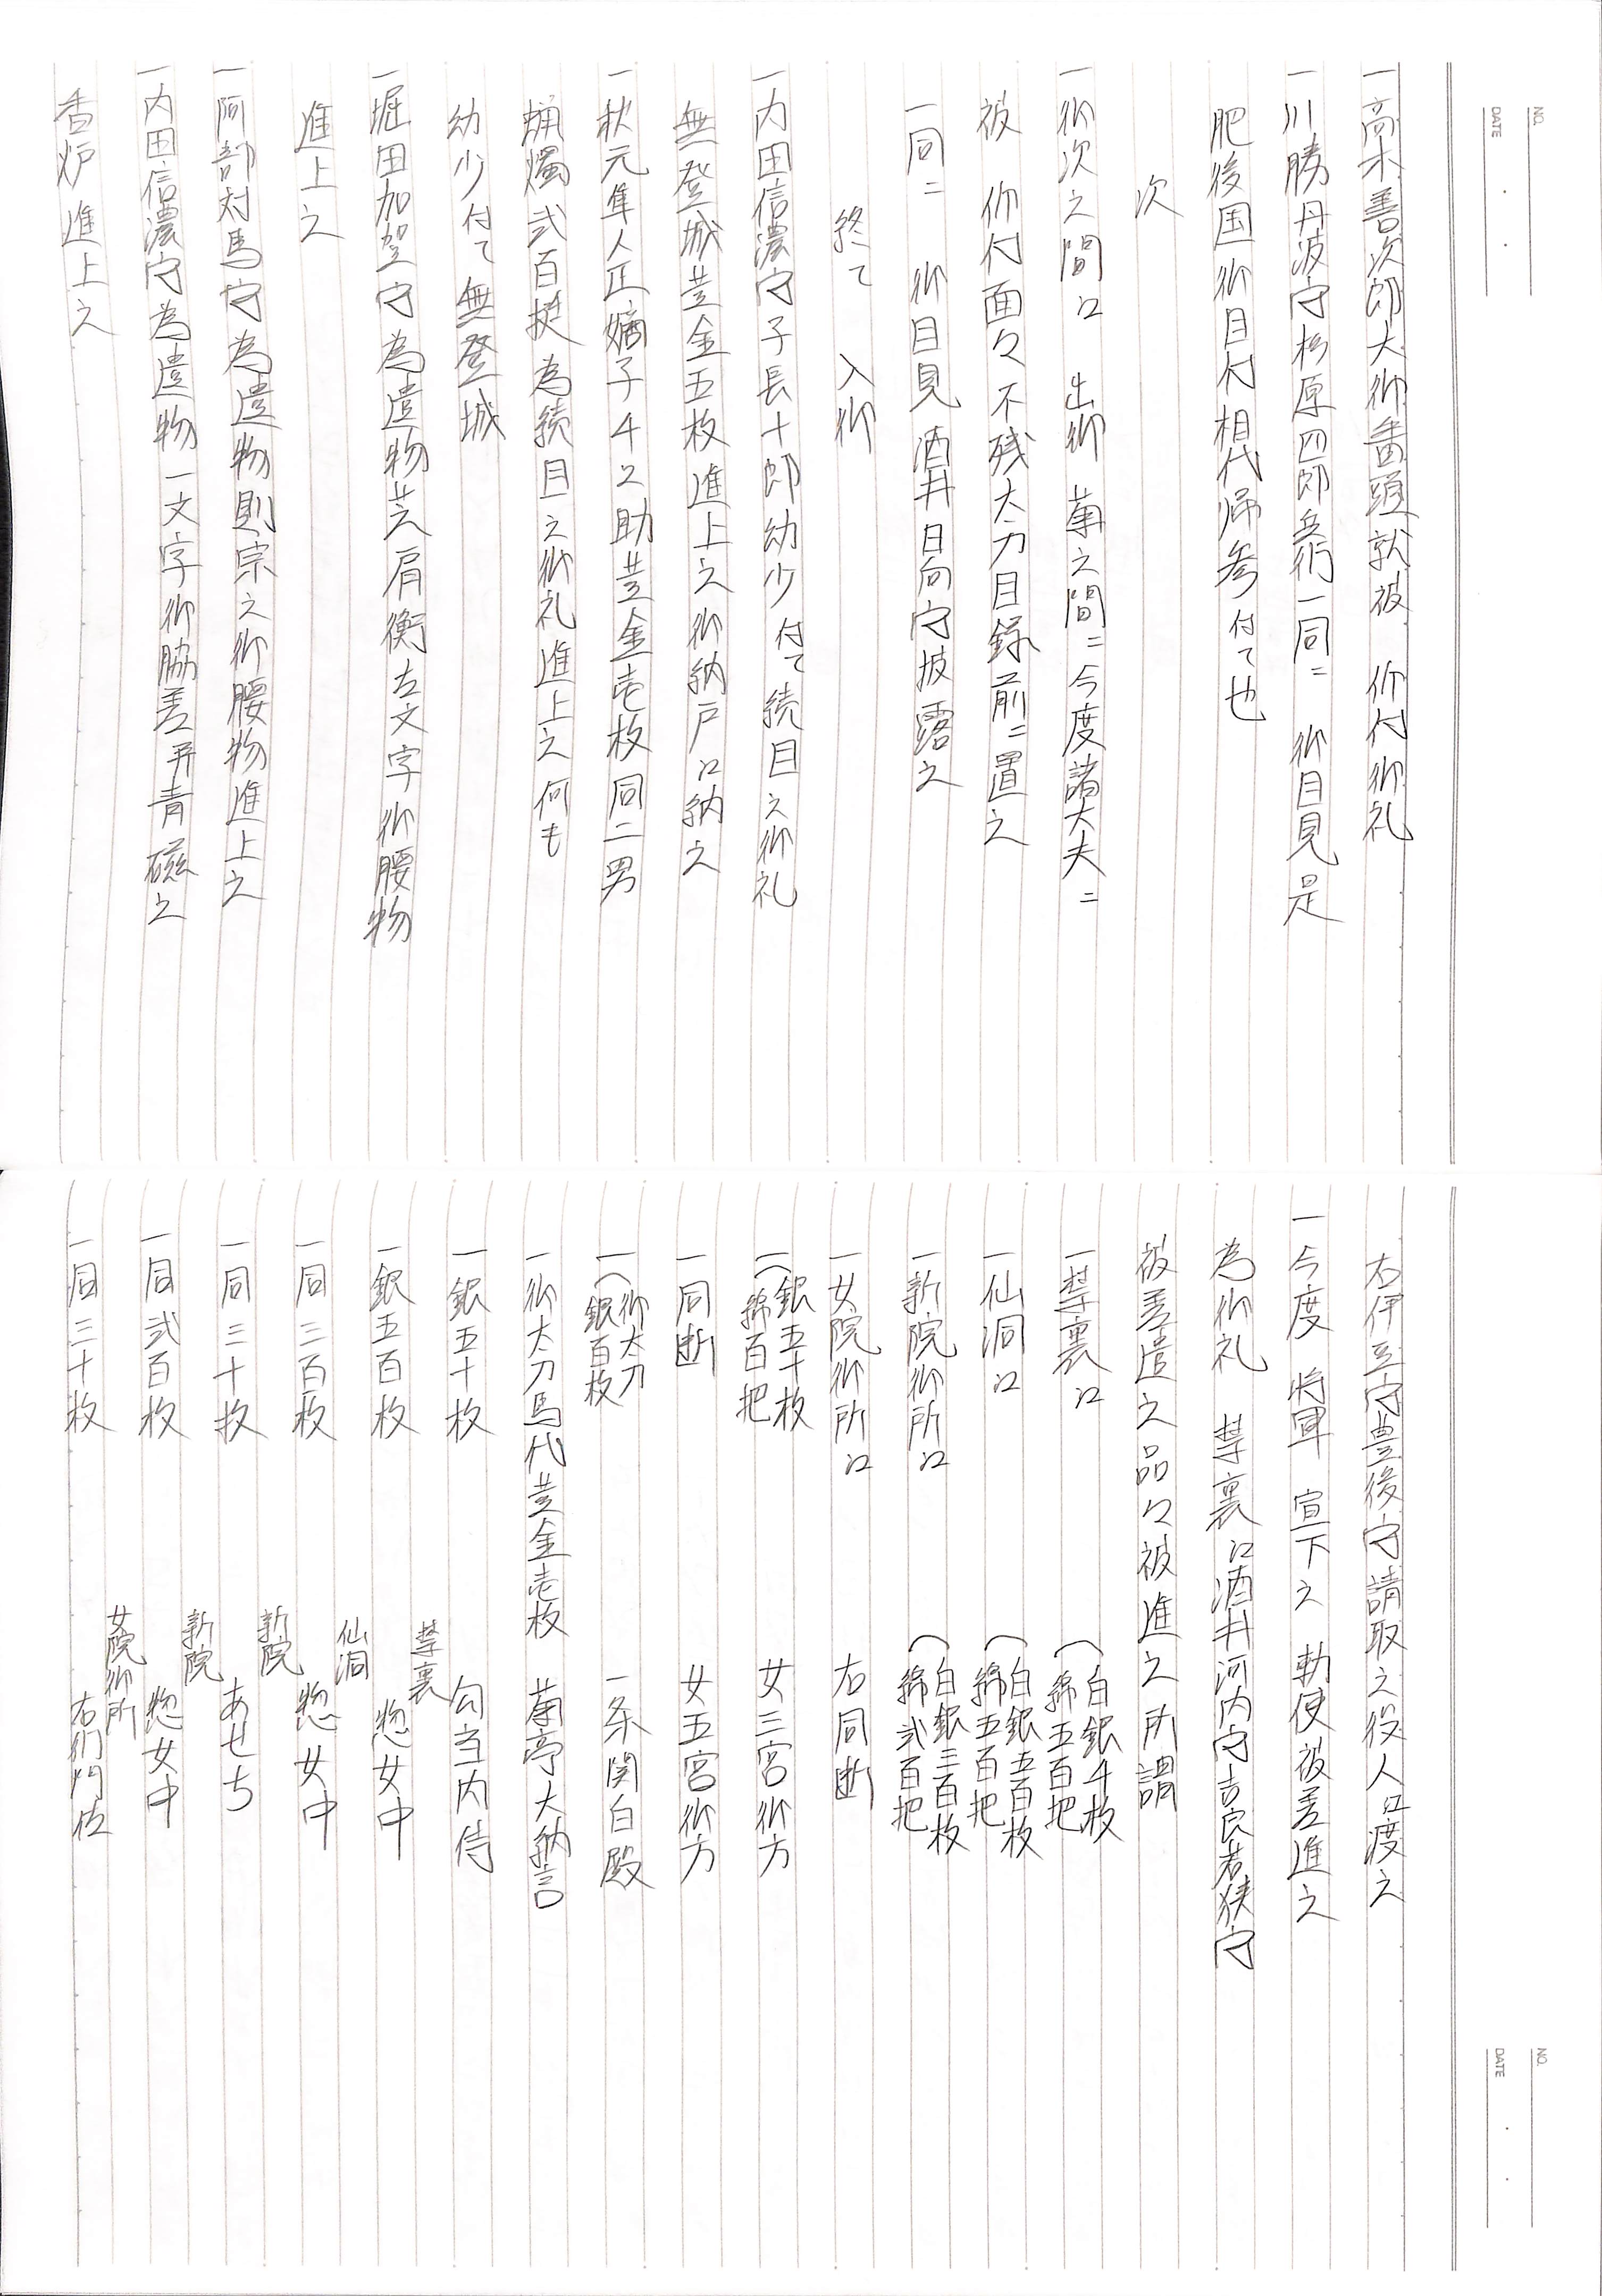 NO.
DATE
一高木善次郎大御番頭就被 仰付御礼
一川勝丹波守杉原四郎兵衛一同ニ 御目見是
肥後国御目付相代帰参付て也
次
一御次之間江 出御 菊之間ニ今度諸大夫ニ
被 仰付面々不残太刀目録前ニ置之
一同ニ 御目見酒井日向守披露之
終て 入御
一内田信濃守子長十郎幼少付て続目之御礼
無登城黄金五枚進上之御納戸江納之
一秋元隼人正嫡子千之助黄金壱枚同二男
蠟燭弐百挺為続目之御礼進上之何も
幼少付て無登城
一堀田加賀守為遺物茶肩衝左文字御腰物
進上之
一阿部対馬守為遺物則宗之御腰物進上之
一内田信濃守為遺物一文字御脇差并青磁之
香炉進上之
NO.
DATE
右伊豆守豊後守請取之役人江渡之
一今度 将軍 宣下之 勅使被差進之
為御礼 禁裏江酒井河内守吉良若狭守
被差遣之品々被進之所謂
一禁裏江 白銀千枚 綿五百把
一仙洞江 白銀五百枚 綿五百把
一新院御所江 白銀三百枚 綿弐百把
一女院御所江 右同断
一銀五十枚 綿百把 女三宮御方
一同断 女五宮御方
一御太刀 銀百枚 一条関白殿
一御太刀馬代黄金壱枚 菊亭大納言
一銀五十枚 勾当内侍
一銀五百枚 禁裏 惣女中
一同三百枚 仙洞 惣女中
一同三十枚 新院 あせち
一同弐百枚 新院 惣女中
一同三十枚 女院御所 右衛門佐